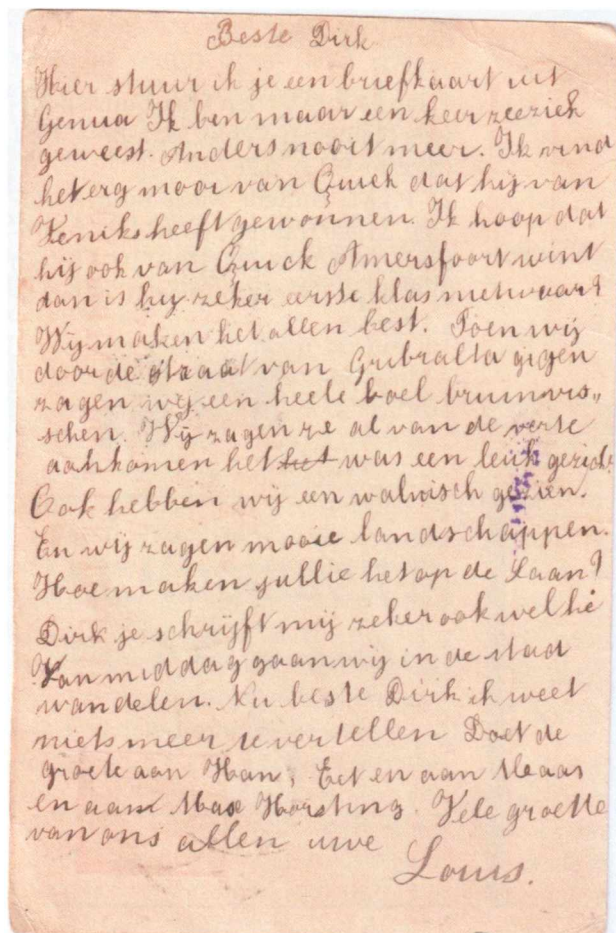 Beste Dirk
Hier stuur ik je een briefkaart uit
Genua Ik ben maar een keer zeeziek
geweest. Anders nooit meer. Ik vind
het erg mooi van Quick dat hij van
Xeniks heeft gewonnen. Ik hoop dat
hij ook van Quick Amersfoort wint
dan is hij zeker eerste klas nietwaar?
Wij maken het allen best. Toen wij
door de straat van Gribralta gigen
zagen wij een heele boel bruinvis„
schen. Wij zagen ze al van de verte
aankomen het het was een leuk gezich.
Ook hebben wij een walvisch gezien.
En wij zagen mooie landschappen.
Hoe maken jullie het op de Laan?
Dirk je schrijft mij zeker ook wel hè
Van middag gaan wij in de stad
wandelen. Nu beste Dirk ik weet
niets meer te vertellen Doet de
groete aan Han, Eet en aan Maas
en aan Max Horsting. Vele groette
van ons allen uwe
Louis.